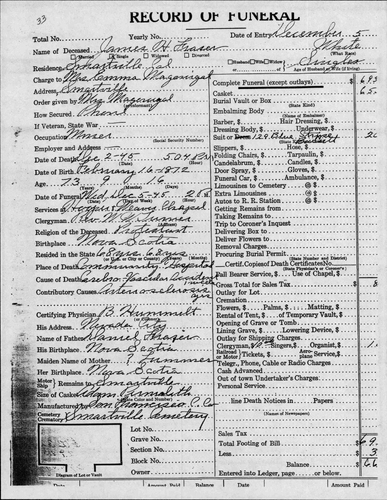 33
RECORD OF FUNERAL
Total No. Yearly No. Date of Entry December 5
Name of Deceased James H. Fraser White
(What Race)
Married Single Widowed Divorced
Residence Smartville Cal Single
Husband Wife Widow of
Age of Husband or Wife (if living)
Charge to Mrs Emma Magonigal
Address Smartville
Order given by Mrs Magonigal
How Secured Phone
If Veteran, State War
Occupation Miner
(Social Security Number)
Employer and Address
Date of Death Dec 2-45
Date of Birth February 16-1872
Age 73 9 16
Date of Funeral Wed Dec 5-45
Services at Chapel
Clergyman Rev.
Religion of the Deceased Protestant
Birthplace Nova Scotia
Resided in the State
Place of Death Community Hospital
Cause of Death
Contributory Causes Arteriosclerosis
Certifying Physician B. Hummelt
His Address Nevada City
Name of Father Daniel Fraser
His Birthplace Nova Scotia
Maiden Name of Mother
Her Birthplace Nova Scotia
Motor Ship Remains to Smartville
Size of Casket
Manufactured by San Francisco C. Co
Cemetery Crematory Smartville Cemetery
Lot No.
Grave No.
Section No.
Block No.
Owner
Diagram of Lot or Vault
Complete Funeral (except outlays) $ 693
Casket 65
Burial Vault or Box
(State Kind)
Embalming Body
Barber, $ Hair Dressing, $
Dressing Body, $ Underwear, $
Suit or Dress 129 Blue
Slippers, $ Hose, $
Folding Chairs, $ Tarpaulin, $
Candelabrum, $ Candles, $
Door Spray, $ Gloves, $
Funeral Car, $ Ambulance, $
Limousines to Cemetery @ $
Extra Limousines @ $
Autos to R. R. Station @ $
Getting Remains from
Taking Remains to
Trip to Coroner's Inquest
Delivering Box to
Deliver Flowers to
Removal Charges
Procuring Burial Permit
Certified Copies of Death Certificate
(State Physician's or Coroner's)
Pall Bearer Service, $ Use of Chapel, $
Gross Total for Sales Tax $
Outlay for Lot
Cremation
Flowers, $ Palms, $ Matting, $
Rental of Tent, $ of Temporary Vault, $
Opening of Grave or Tomb
Lining Grave, $ Lowering Device, $
Outlay for Shipping Charges
Clergyman, $ Singers, $ Organist, $
Railroad or Motor Tickets, $ Aeroplane Service, $
Telegr., Phone, Cable or Radio Charges
Cash Advanced
Out of town Undertaker's Charges
Personal Service
line Death Notices in Papers
(Names of Newspapers)
Sales Tax
Total Footing of Bill $
Less $
Balance $
Entered into Ledger, page or below.